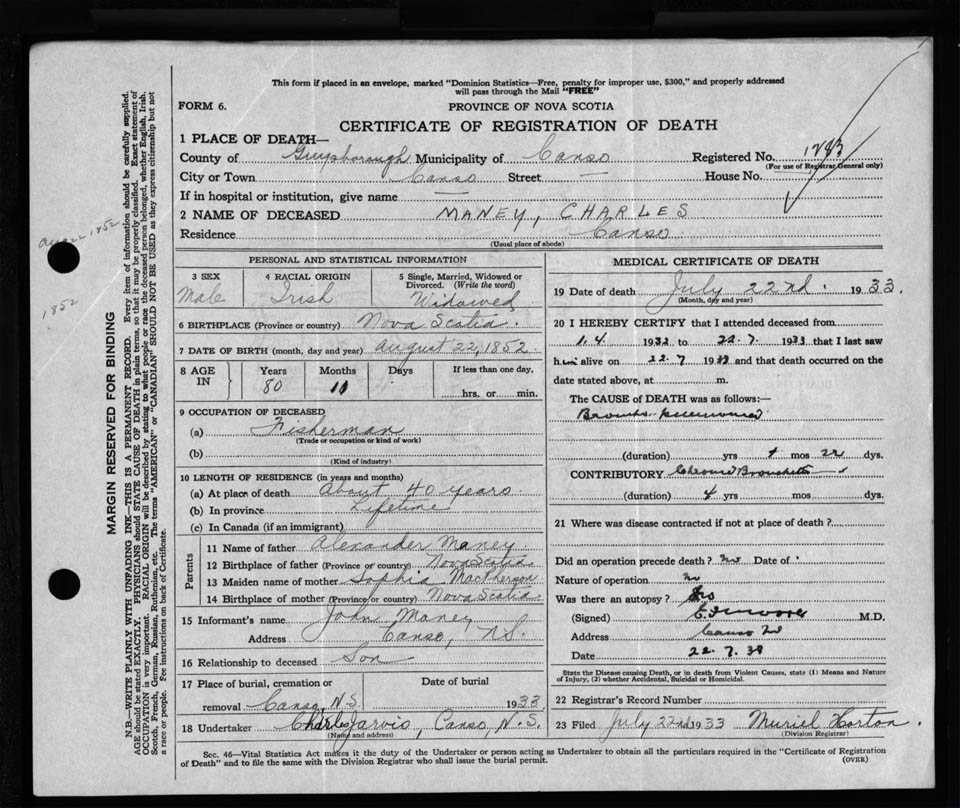 This form if placed in an envelope, marked "Dominion Statistics—Free, penalty for improper use, $300," and properly addressed
will pass through the Mail "FREE"
FORM 6.
PROVINCE OF NOVA SCOTIA
CERTIFICATE OF REGISTRATION OF DEATH
1 PLACE OF DEATH—
County of Guysborough Municipality of Canso Registered No. 1283
(For use of Registrar General only)
City or Town Canso Street — House No.
If in hospital or institution, give name —
2 NAME OF DECEASED MANEY, CHARLES
Residence Canso
(Usual place of abode)
PERSONAL AND STATISTICAL INFORMATION
3 SEX 4 RACIAL ORIGIN 5 Single, Married, Widowed or
Divorced. (Write the word)
Male Irish Widowed
6 BIRTHPLACE (Province or country) Nova Scotia.
7 DATE OF BIRTH (month, day and year) August 22, 1852.
8 AGE IN Years Months Days If less than one day,
80 11 hrs. or min.
9 OCCUPATION OF DECEASED
(a) Fisherman
(Trade or occupation or kind of work)
(b)
(Kind of industry)
10 LENGTH OF RESIDENCE (in years and months)
(a) At place of death About 40 years
(b) In province Lifetime
(c) In Canada (if an immigrant)
Parents
11 Name of father Alexander Maney
12 Birthplace of father (Province or country) Nova Scotia
13 Maiden name of mother Sophia MacPherson
14 Birthplace of mother (Province or country) Nova Scotia
15 Informant's name John Maney
Address Canso, N.S.
16 Relationship to deceased Son
17 Place of burial, cremation or Date of burial
removal Canso, N.S. 1933
18 Undertaker Charles Jarvis, Canso, N.S.
(Name and address)
MEDICAL CERTIFICATE OF DEATH
19 Date of death July 22nd. 1933.
(Month, day and year)
20 I HEREBY CERTIFY that I attended deceased from
1.4. 1932 to 22.7. 1933 that I last saw
him alive on 22.7 1933 and that death occurred on the
date stated above, at m.
The CAUSE of DEATH was as follows:—
Broncho-pneumonia
(duration) yrs mos 22 dys.
CONTRIBUTORY Chronic Bronchitis
(duration) 4 yrs mos. dys.
21 Where was disease contracted if not at place of death?
Did an operation precede death? no Date of
Nature of operation no
Was there an autopsy? No
(Signed) M.D.
Address Canso
Date 22.7.33
State the Disease causing Death, or in death from Violent Causes, state (1) Means and Nature
of Injury, (2) whether Accidental, Suicidal or Homicidal.
22 Registrar's Record Number
23 Filed July 22nd 1933 Muriel Horton.
(Division Registrar)
Sec. 46—Vital Statistics Act makes it the duty of the Undertaker or person acting as Undertaker to obtain all the particulars required in the "Certificate of Registration
of Death" and to file the same with the Division Registrar who shall issue the burial permit.
(OVER)
MARGIN RESERVED FOR BINDING
N.B.—WRITE PLAINLY WITH UNFADING INK—THIS IS A PERMANENT RECORD. Every item of information should be carefully supplied.
AGE should be stated EXACTLY. PHYSICIANS should STATE CAUSE OF DEATH in plain terms, so that it may be properly classified. Exact statement of
OCCUPATION is very important. RACIAL ORIGIN will be described by stating to what people or race the deceased person belonged, whether English, Irish,
Scotch, French, German, Russian, Ruthenian, etc. The terms "AMERICAN" or "CANADIAN" SHOULD NOT BE USED as they express citizenship but not
a race or people. See instructions on back of Certificate.
Aug 22 1852
1852